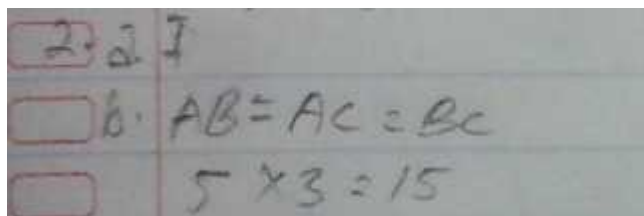 2. a. I
b. AB = AC = BC
5 × 3 = 15